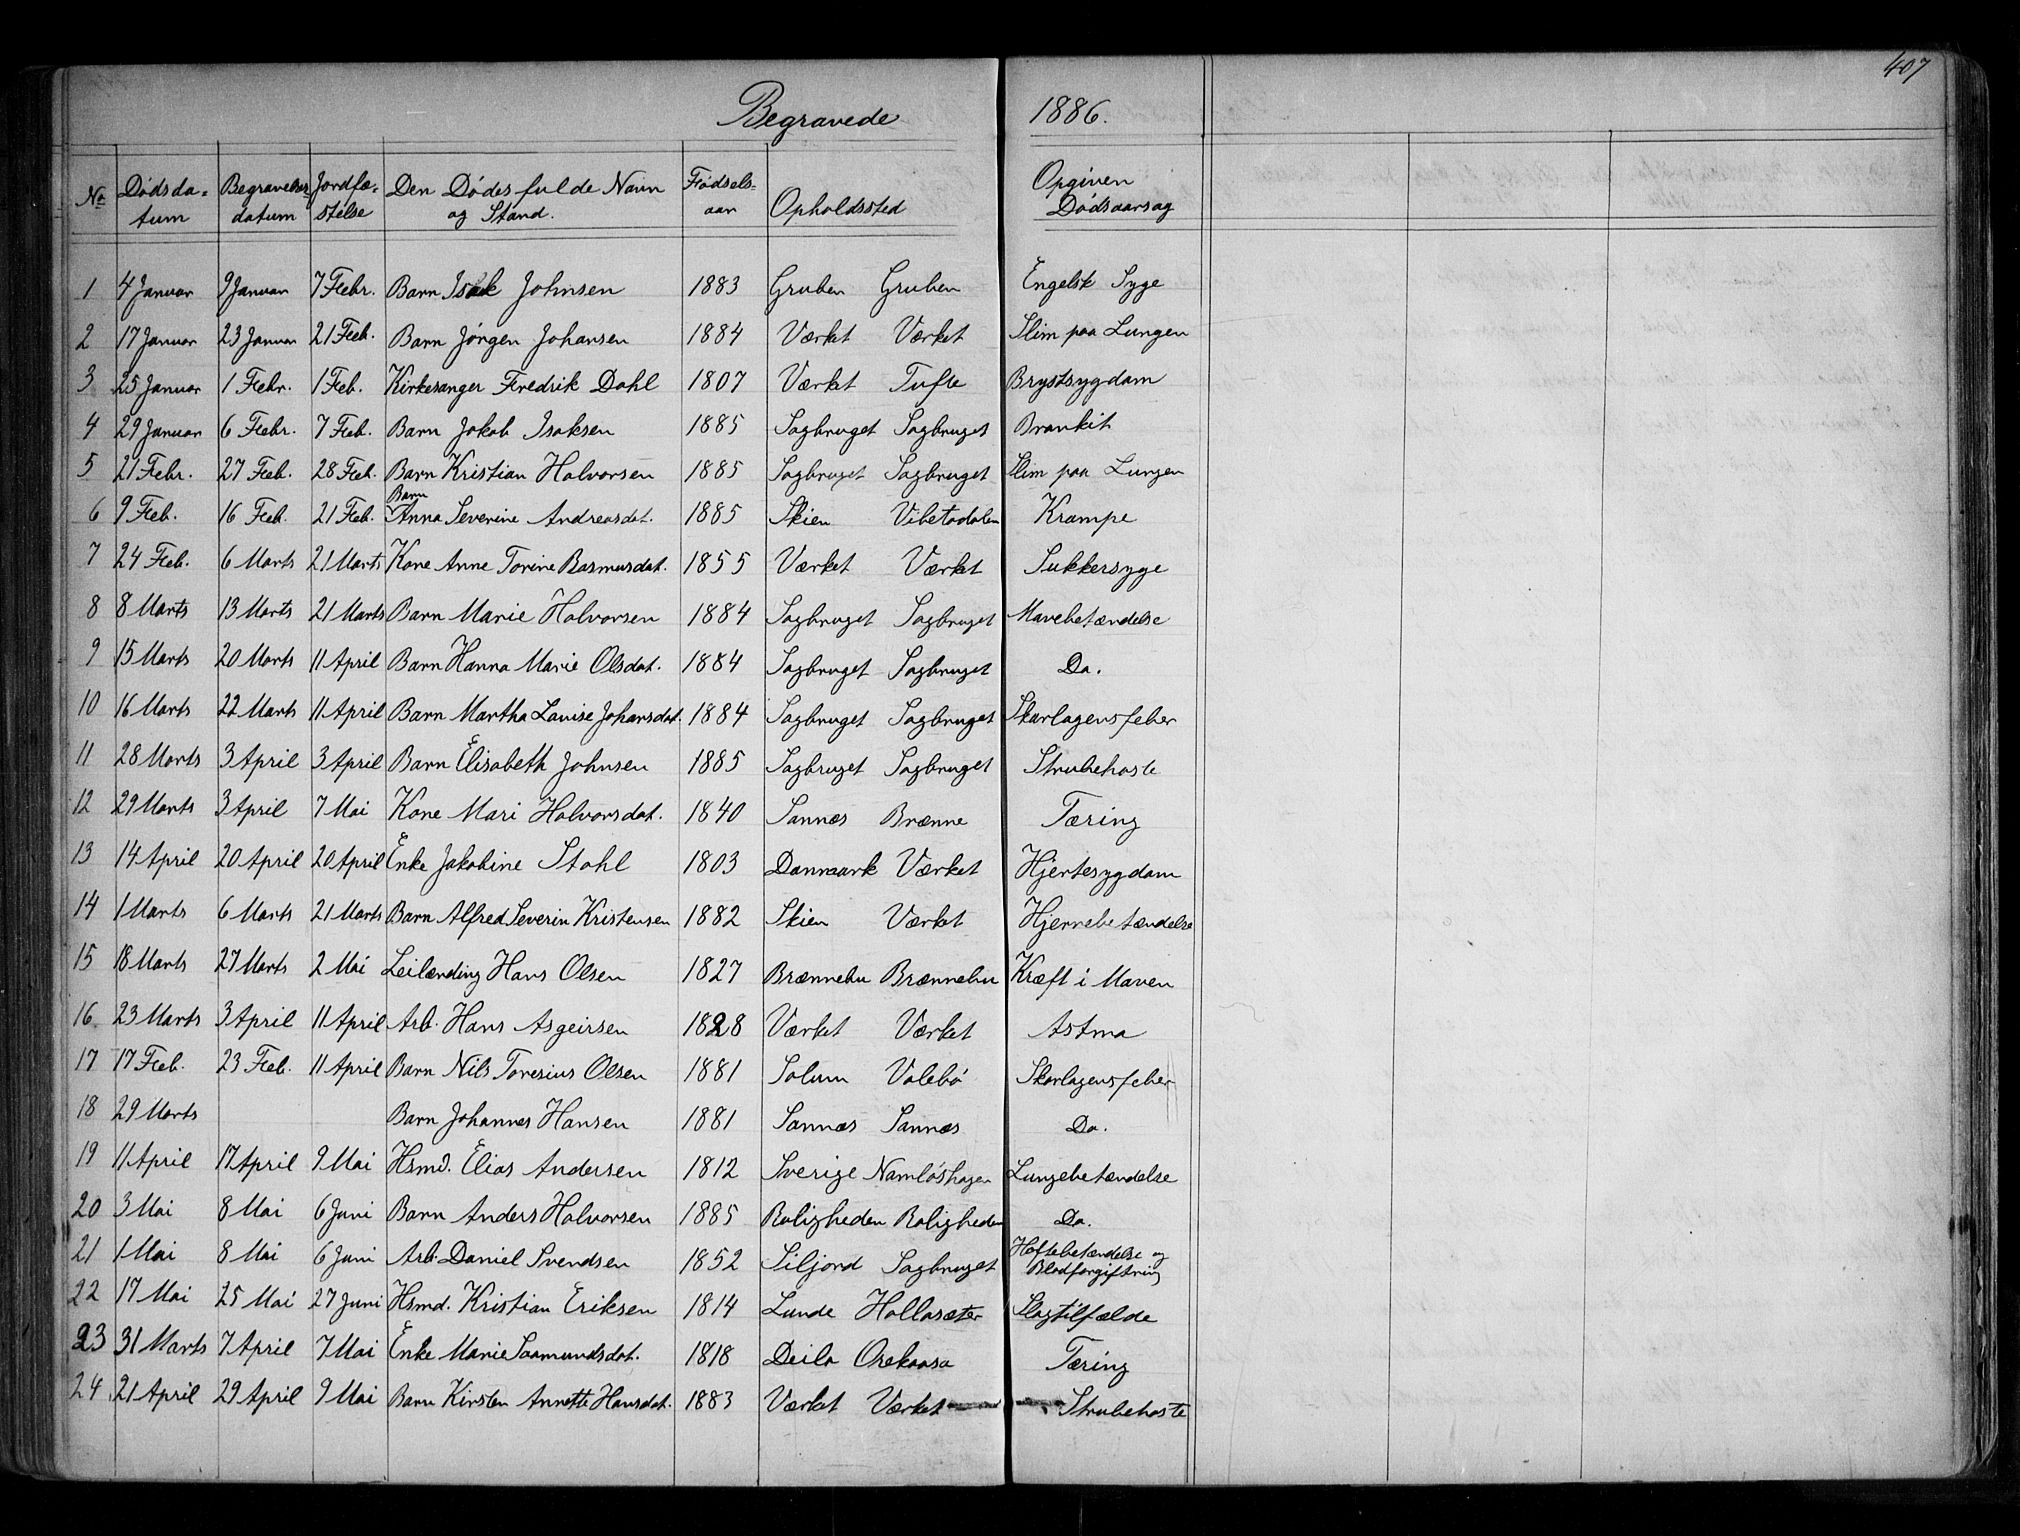 407
Begravede 1886.
No Dødsda- Begravelses Jordfæ- Den Dødes fulde Navn Fødsels- Opholdssted Opgiven
tum datum stelse og Stand. aar Dødsaarsag
1 4 Januar 9 Januar 7 Febr. Barn Isak Johnsen 1883 Gruben Gruben Engelsk Syge
2 17 Januar 23 Januar 21 Feb. Barn Jørgen Johansen 1884 Værket Værket Slim paa Lungen
3 25 Januar 1 Febr. 1 Feb. Kirkesanger Fredrik Dahl 1807 Værket Tufte Brystsygdam
4 29 Januar 6 Febr. 7 Feb. Barn Jakob Isaksen 1885 Sagbruget Sagbruget Brankit
5 21 Febr. 27 Feb. 28 Feb. Barn Kristian Halvorsen 1885 Sagbruget Sagbruget Slim paa Lungen
Barn
6 9 Feb. 16 Feb. 21 Feb. Anna Severine Andreasdat. 1885 Skien Vibetodalen Krampe
7 24 Feb. 6 Marts 21 Marts Kone Anne Torine Rasmusdat. 1855 Værket Værket Sukkersyge
8 8 Marts 13 Marts 21 Marts Barn Marie Halvorsen 1884 Sagbruget Sagbruget Mavebetændelse
9 15 Marts 20 Marts 11 April Barn Hanna Marie Olsdat. 1884 Sagbruget Sagbruget Do.
10 16 Marts 22 Marts 11 April Barn Martha Lovise Johansdat. 1884 Sagbruget Sagbruget Skarlagensfeber
11 28 Marts 3 April 3 April Barn Elisabeth Johnsen 1885 Sagbruget Sagbruget Strubehoste
12 29 Marts 3 April 7 Mai Kone Mari Halvorsdat. 1840 Sannes Brænne Tæring
13 14 April 20 April 20 April Enke Jakobine Stahl 1803 Danmark Værket Hjertesygdam
14 1 Marts 6 Marts 21 Marts Barn Alfred Severin Kristensen 1882 Skien Værket Hjernebetændelse
15 18 Marts 27 Marts 2 Mai Leilænding Hans Olsen 1827 Brænnebu Brænnebu Kræft i Maven
16 23 Marts 3 April 11 April Arb. Hans Asgeirsen 1828 Værket Værket Astma
17 17 Feb. 23 Feb. 11 April Barn Nils Toresius Olsen 1881 Solum Valebø Skarlagensfeber
18 29 Marts Barn Johannes Hansen 1881 Sannes Sannes Do.
19 11 April 17 April 9 Mai Hsmd. Elias Andersen 1812 Sverige Namløshagen Lungebetændelse
20 3 Mai 8 Mai 6 Juni Barn Anders Halvorsen 1885 Roligheden Roligheden Do.
21 1 Mai 8 Mai 6 Juni Arb. Daniel Svendsen 1852 Siljord Sagbruget Hoftebetændelse og
Blodforgiftning
22 17 Mai 25 Mai 27 Juni Hsmd. Kristian Eriksen 1814 Lunde Hollasæter Slagtilfælde
23 31 Marts 7 April 7 Mai Enke Marie Saamundsdat. 1818 Deila Orekaasa Tæring
24 21 April 29 April 9 Mai Barn Kirsten Annette Hansdat. 1883 Værket Værket Strubehoste